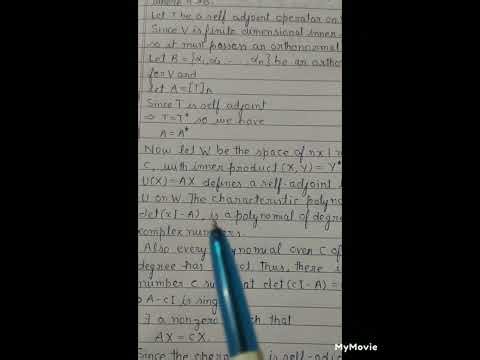 where n>0.
Let T be a self adjoint operator on
Since V is finite dimensional inner
so it must possess an orthonormal
Let B = {α₁, α₂, ---, αₙ} be an ortho
for V and
let A = [T]
Since T is self adjoint
⇒ T = T* so we have
A = A*
Now let W be the space of nx1 m
C, with inner product (X, Y) = Y*
U(X) = AX defines a self-adjoint
U on W. The characteristic polyno
det(xI-A), is a polynomial of degre
complex numbers.
Also every polynomial over C of
degree has root. Thus, there is
number c such that det(cI-A) =
A-cI is sing
∃ a nonzero that
AX = CX.
Since the is self-adj
MyMovie